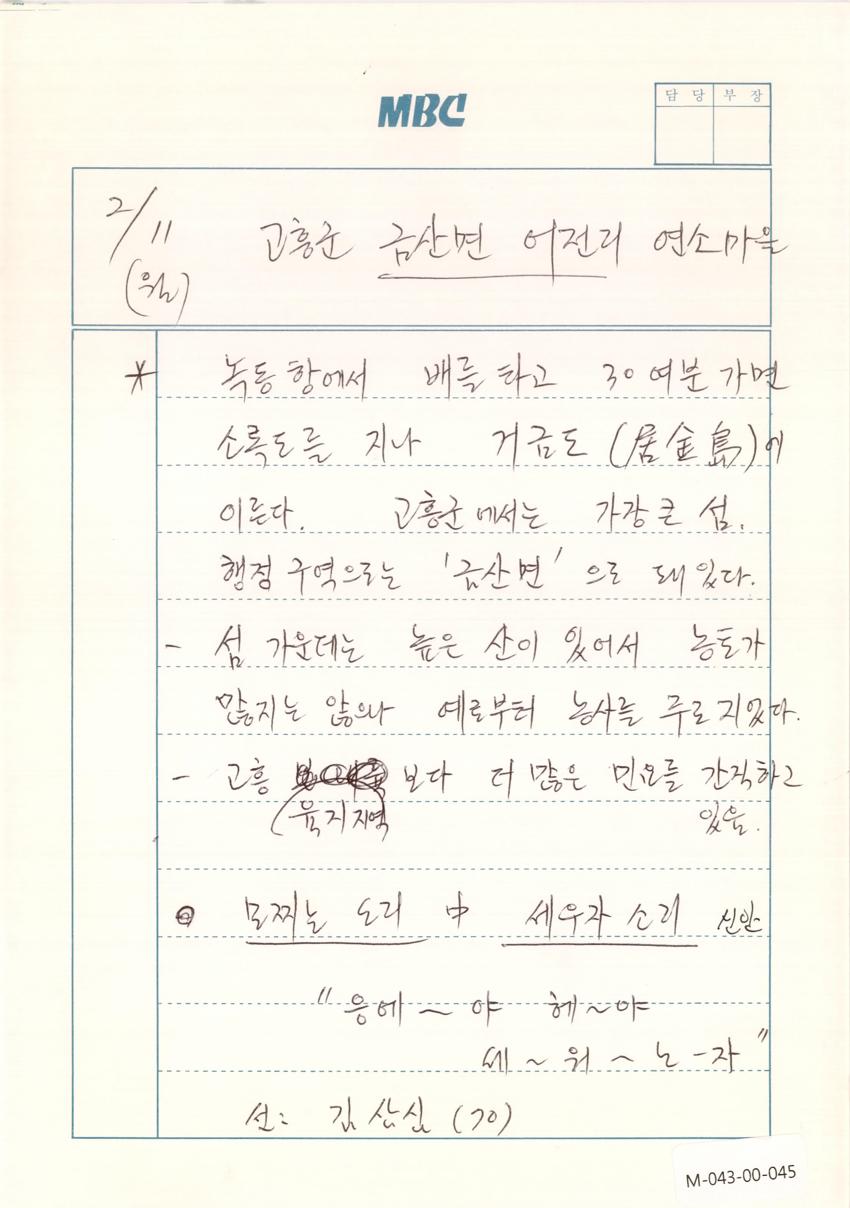 MBC
담당 부장
2/11 고흥군 금산면 어전리 연소마을
(월)
* 녹동항에서 배를 타고 30여분 가면
소록도를 지나 거금도(居金島)에
이른다. 고흥군에서는 가장 큰 섬.
행정구역으로는 '금산면'으로 돼있다.
- 섬 가운데는 높은 산이 있어서 농토가
많지는 않으나 예로부터 농사를 주로 지었다.
- 고흥 육지지역 보다 더 많은 민요를 간직하고
있음.
모찌는 소리 中 세우자 소리 신안
"응에~야 헤~야
세~워~노-자"
선: 김상심 (70)
M-043-00-045